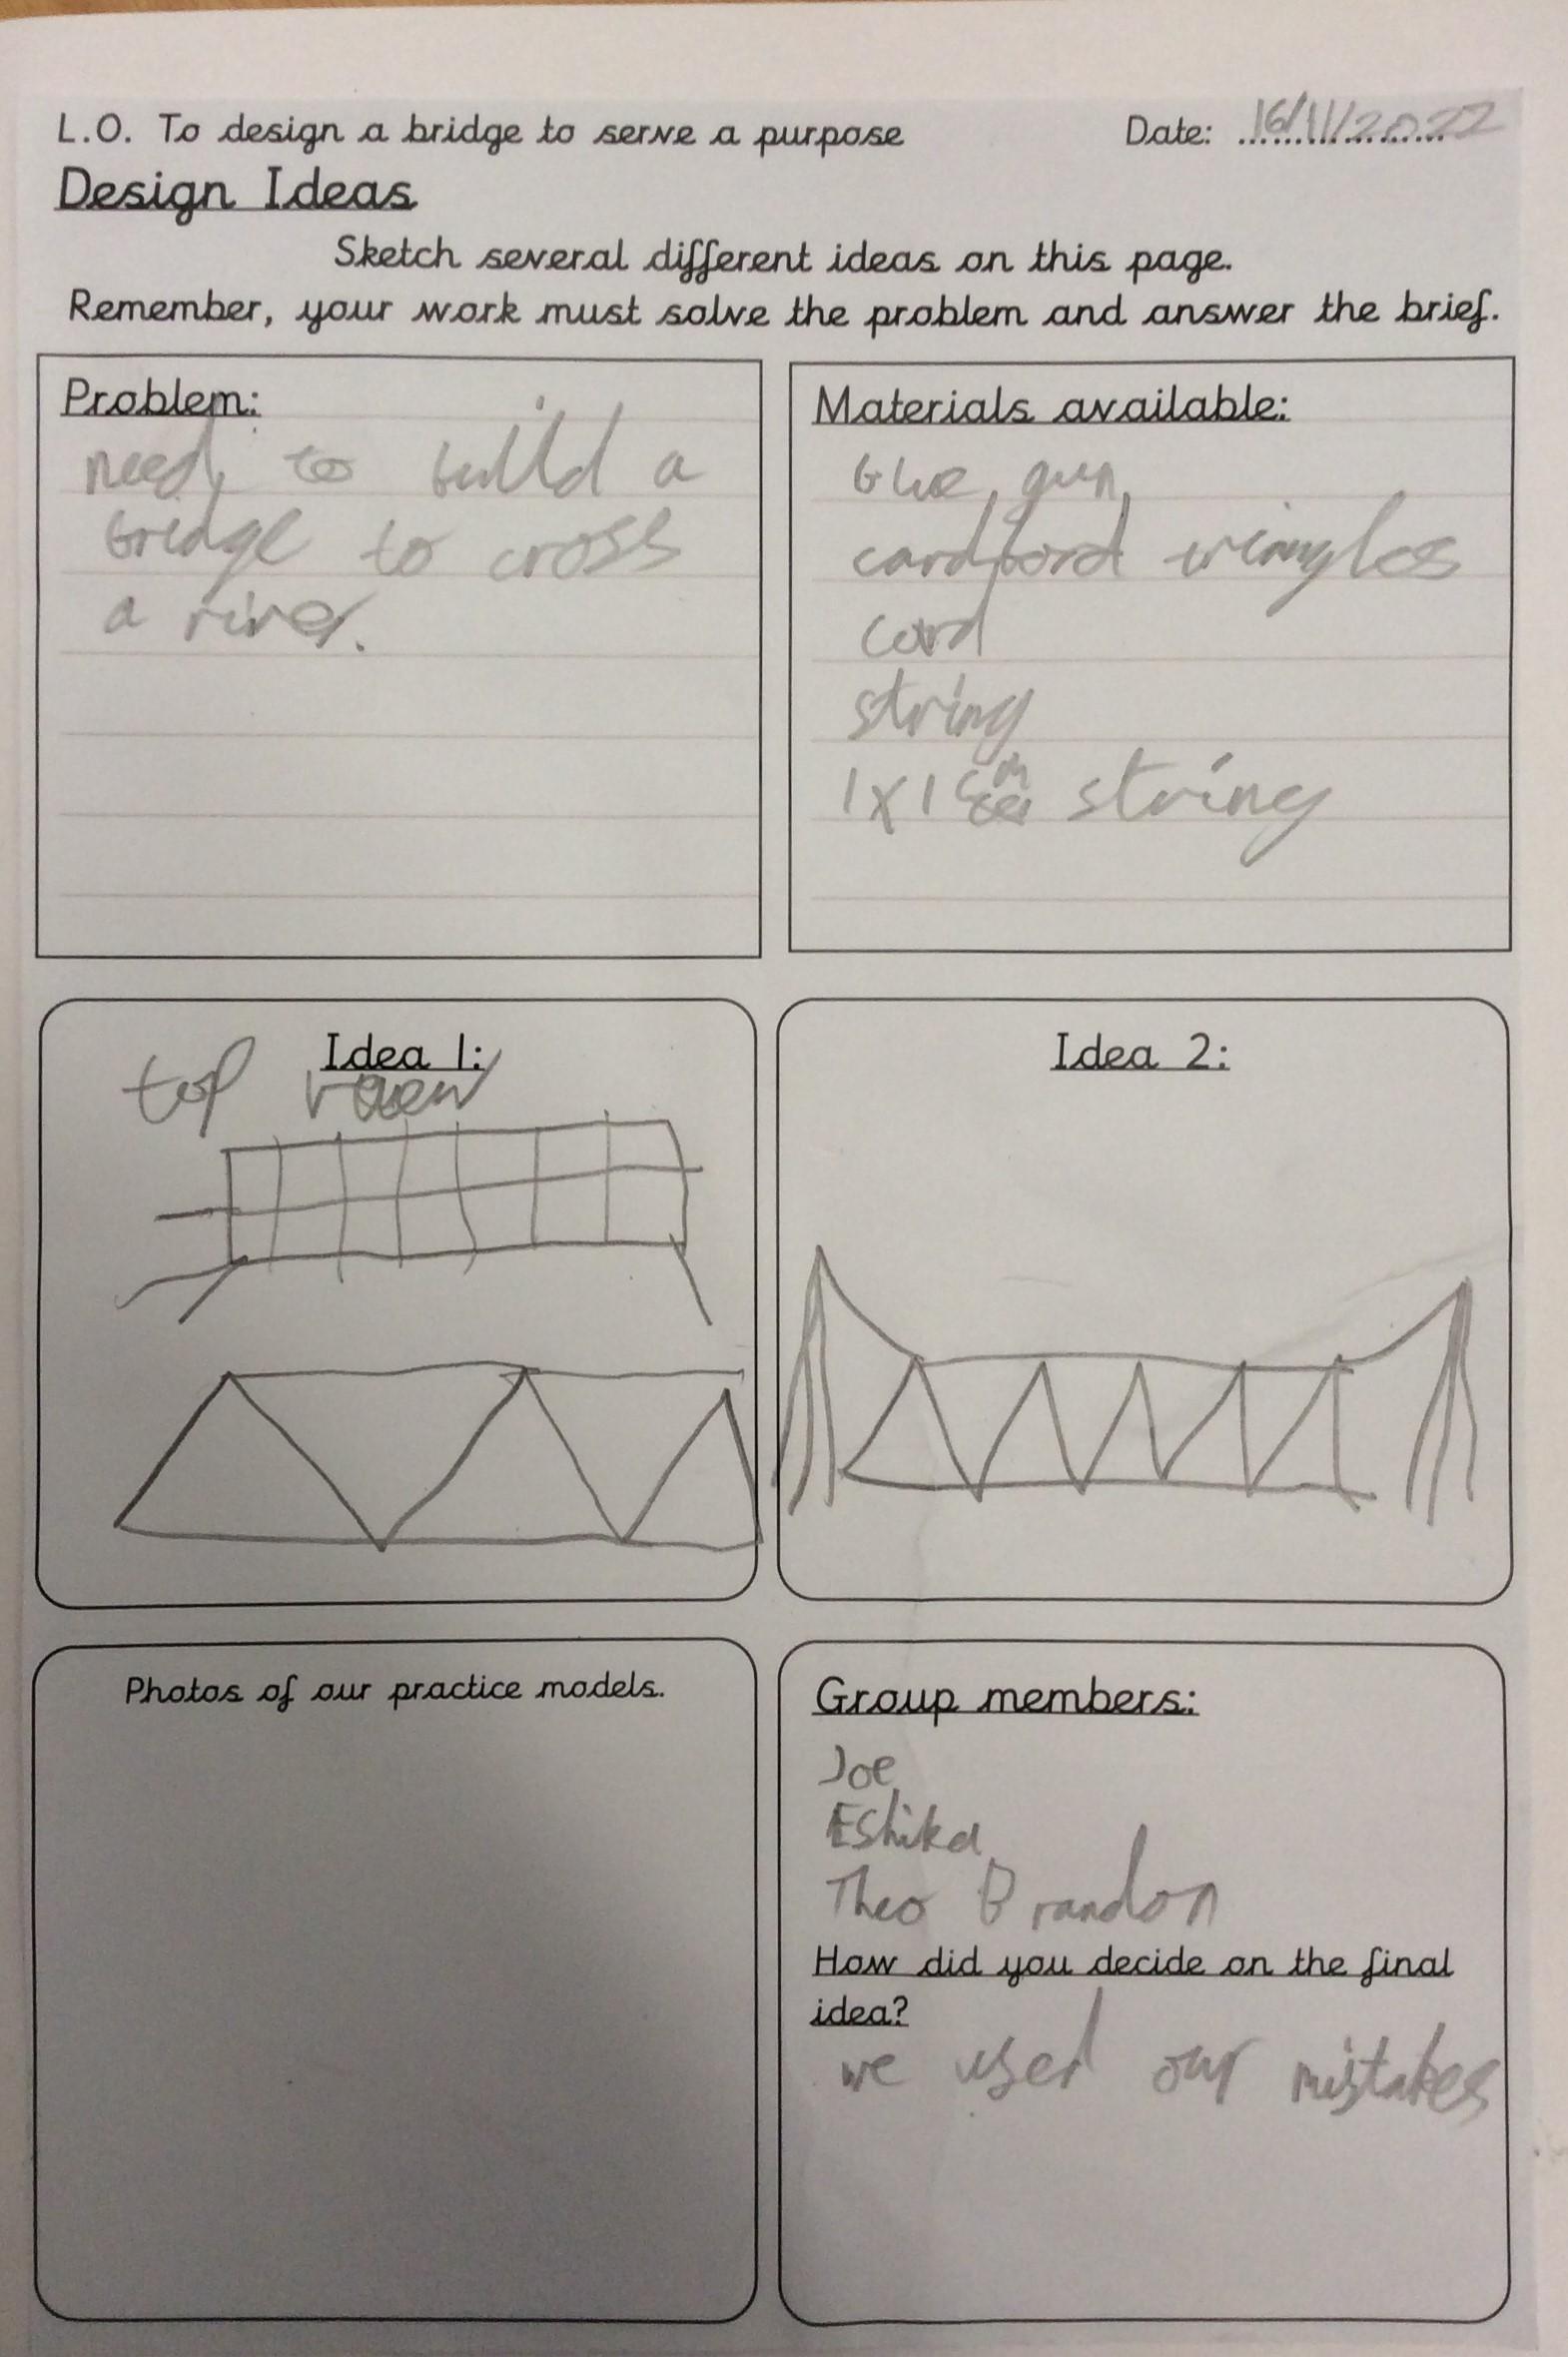 L.O. To design a bridge to serve a purpose Date: 16/11/2022
Design Ideas
Sketch several different ideas on this page.
Remember, your work must solve the problem and answer the brief.
Problem:
need to build a
bridge to cross
a river.
Materials available:
Glue gun
cardbord triangles
card
string
1X1 cm string
Idea 1:
top view
Idea 2:
Photos of our practice models.
Group members:
Joe
Eshika
Theo Brandon
How did you decide on the final
idea?
we used our mistakes